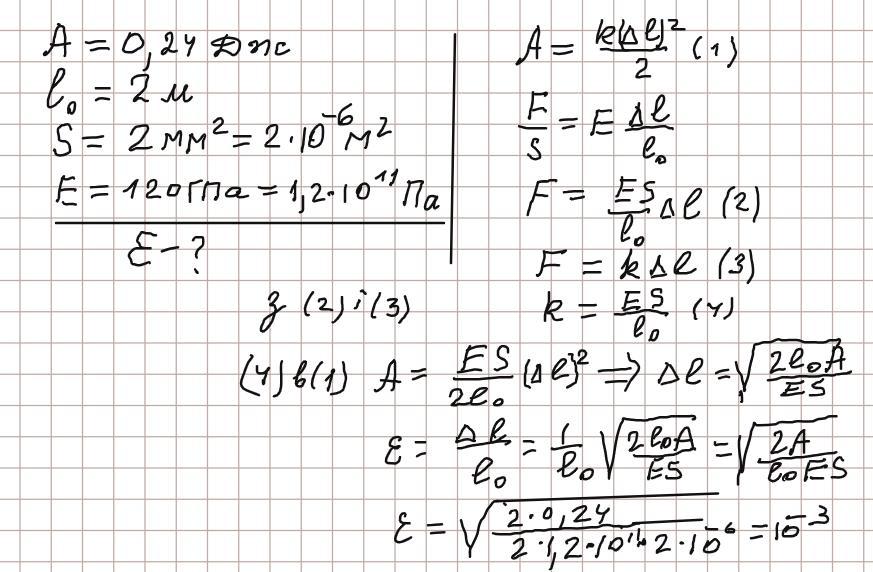 A = 0,24 Дж
l₀ = 2 м
S = 2 мм² = 2·10⁻⁶ м²
E = 120 ГПа = 1,2·10¹¹ Па
ε - ?
A = k(Δl)²/2 (1)
F/S = E Δl/l₀
F = ES/l₀ Δl (2)
F = kΔl (3)
з (2) і (3) k = ES/l₀ (4)
(4) в (1) A = ES/2l₀ (Δl)² ⇒ Δl = √(2l₀A/ES)
ε = Δl/l₀ = 1/l₀ √(2l₀A/ES) = √(2A/l₀ES)
ε = √(2·0,24/2·1,2·10¹¹·2·10⁻⁶) = 10⁻³